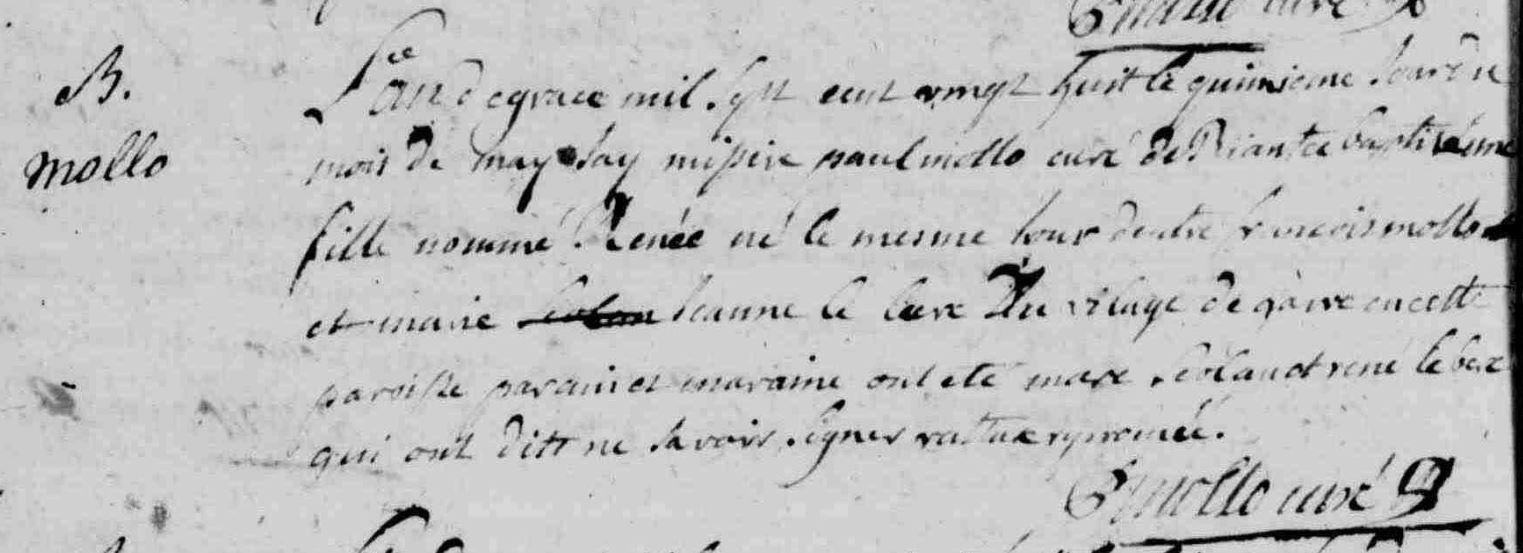 B.
mollo
L'an de grace mil sept cent vingt huit le quinsieme jour du
mois de may jay missire paul mollo curé de Riantec baptisé une
fille nommé Renée né le mesme jour dentre francois mollo
et marie jeanne le bere du vilage de en cette
paroisse parain et maraine ont eté marc et rené le bere
qui ont ditt ne savoir signer rature aprouvée.
P mollo curé